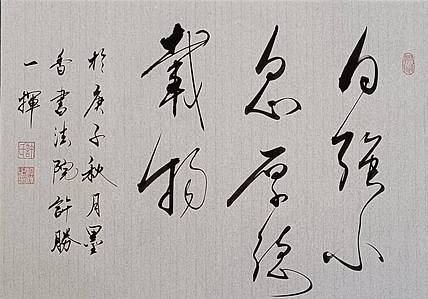 自強不
息厚德
載物
於庚子秋月墨
香書法院許勝
一揮